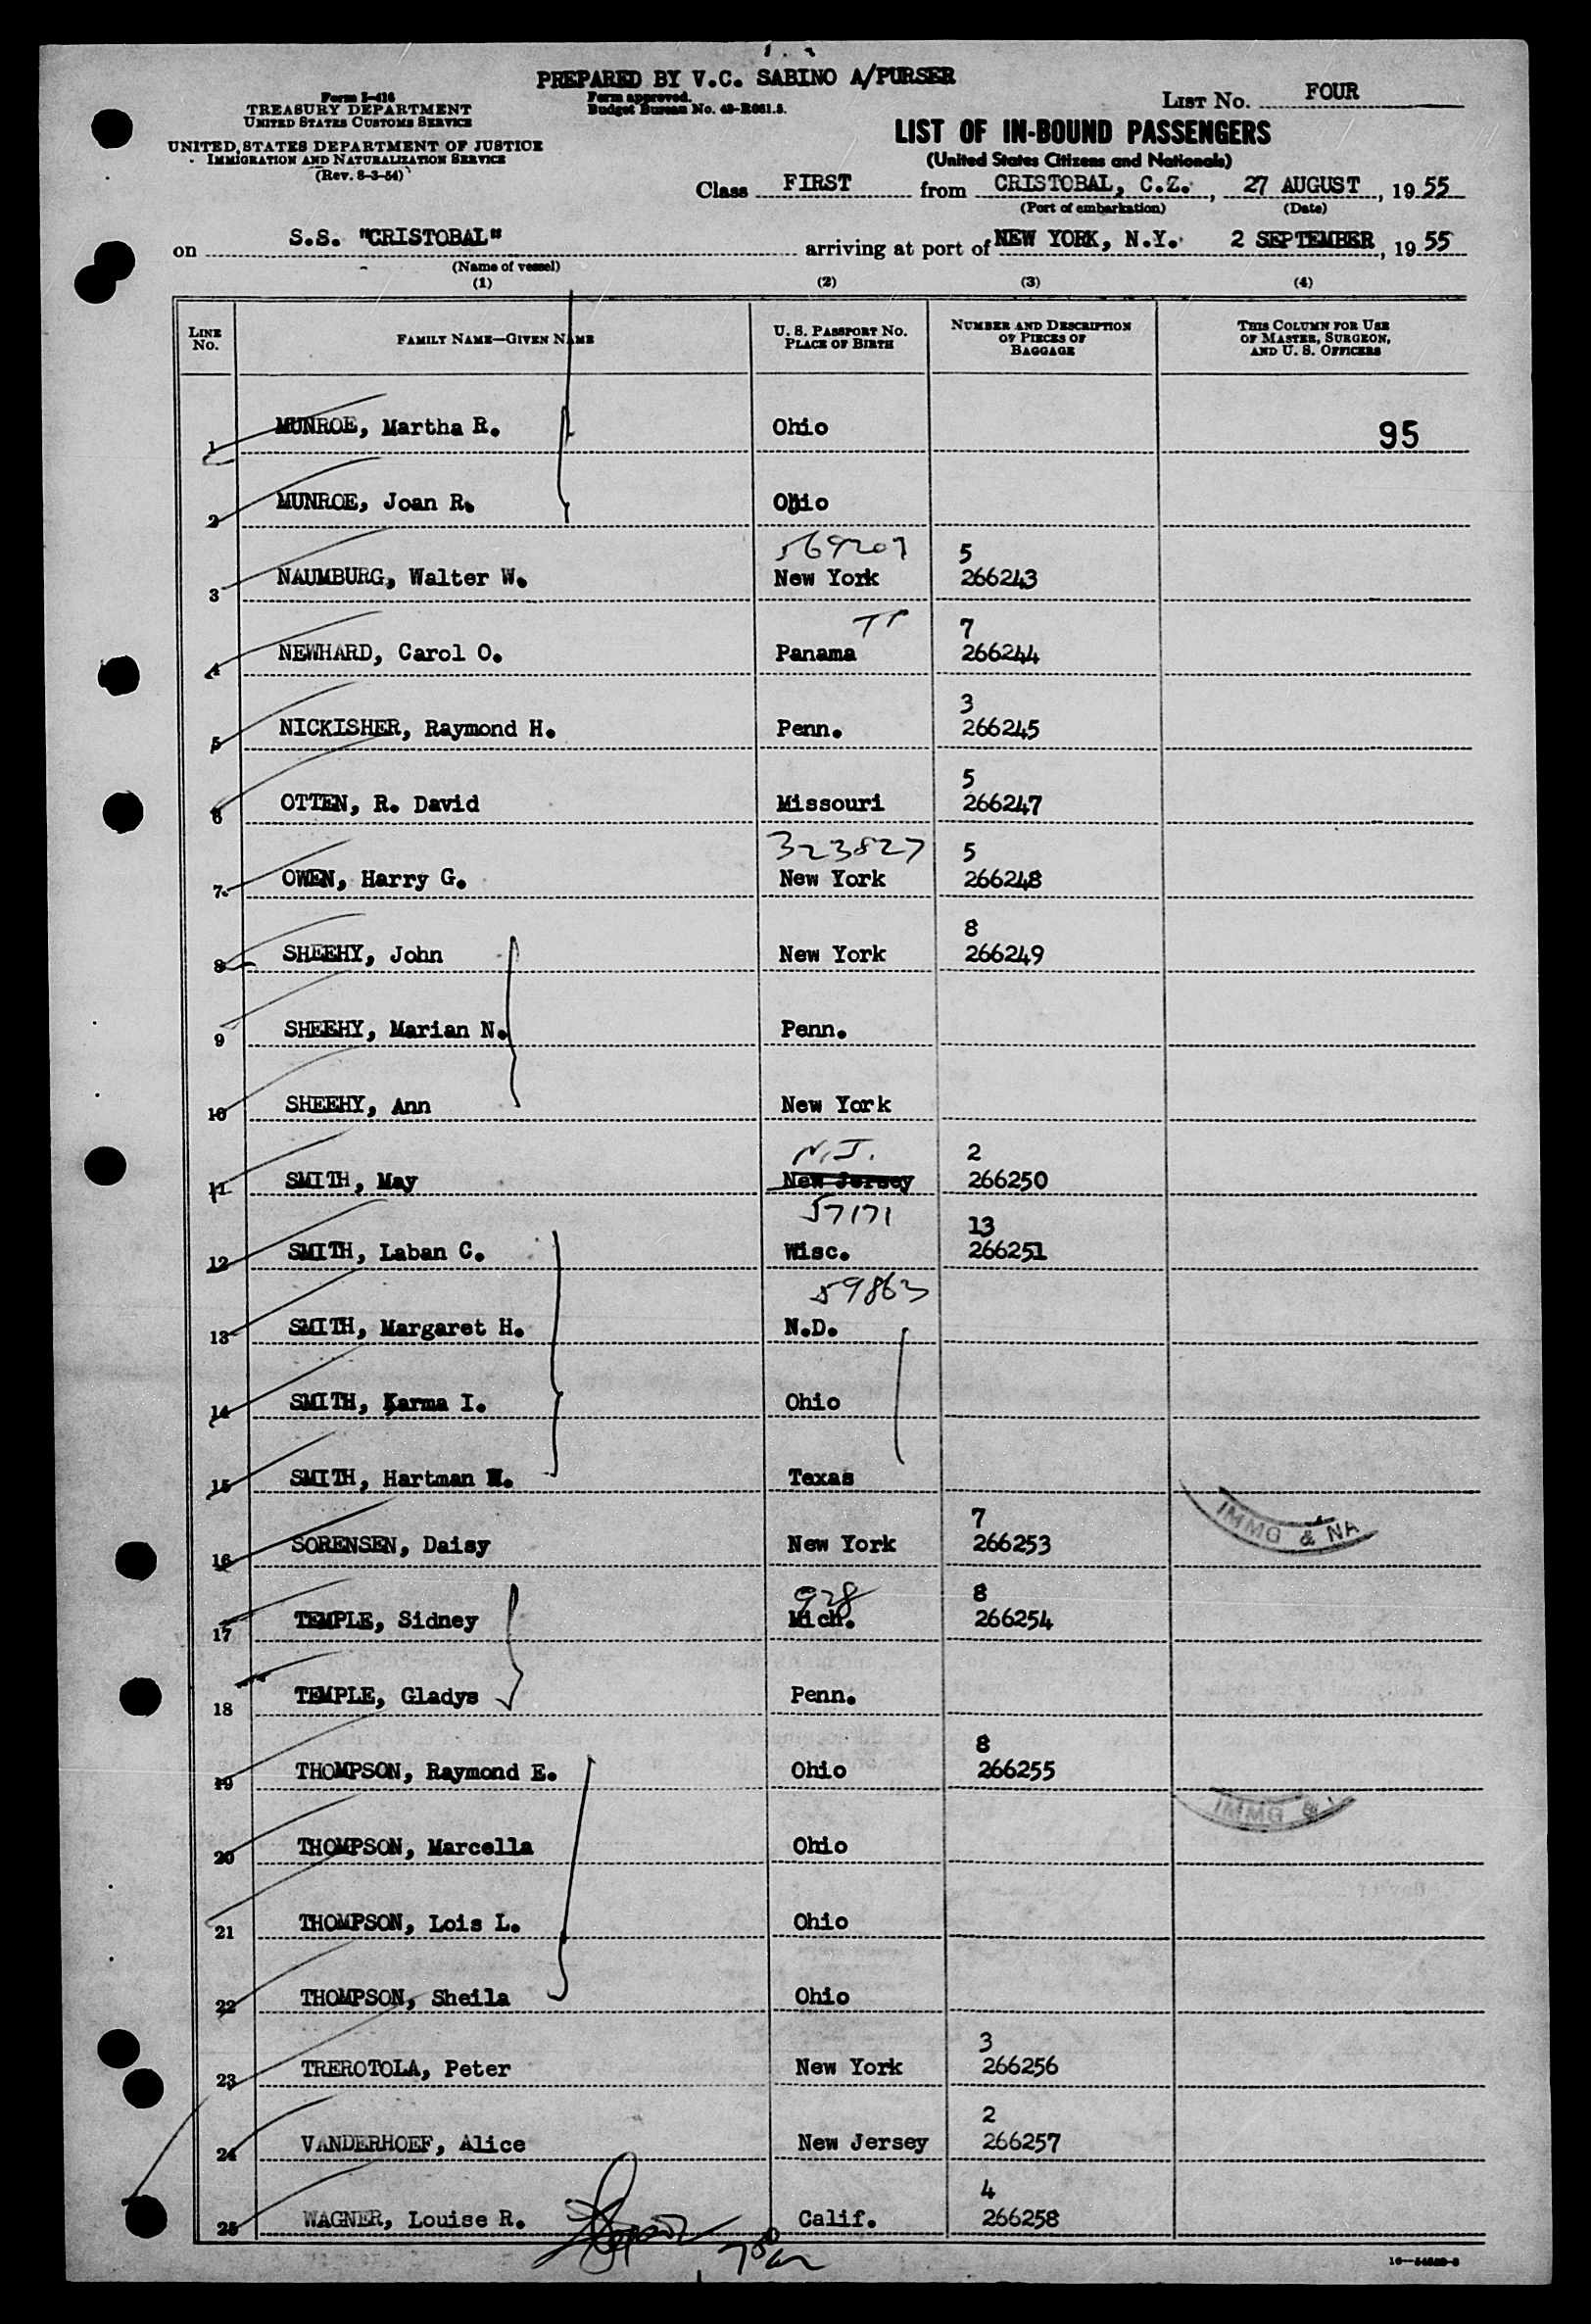 PREPARED BY V.C. SABINO A/PURSER
Form I-416
TREASURY DEPARTMENT
UNITED STATES CUSTOMS SERVICE
UNITED STATES DEPARTMENT OF JUSTICE
IMMIGRATION AND NATURALIZATION SERVICE
(Rev. 8-3-54)
Form approved.
Budget Bureau No. 43-R081.8.
LIST NO. FOUR
LIST OF IN-BOUND PASSENGERS
(United States Citizens and Nationals)
Class FIRST from CRISTOBAL, C.Z., 27 AUGUST, 1955
(Port of embarkation) (Date)
on S.S. "CRISTOBAL" arriving at port of NEW YORK, N.Y. 2 SEPTEMBER, 1955
(Name of vessel)
(1) (2) (3) (4)
LINE NO. FAMILY NAME—GIVEN NAME U. S. PASSPORT NO. PLACE OF BIRTH NUMBER AND DESCRIPTION OF PIECES OF BAGGAGE THIS COLUMN FOR USE OF MASTER, SURGEON, AND U. S. OFFICERS
1 MUNROE, Martha R. Ohio 95
2 MUNROE, Joan R. Ohio
569207 5
3 NAUMBURG, Walter W. New York 266243
7
4 NEWHARD, Carol O. Panama 266244
3
5 NICKISHER, Raymond H. Penn. 266245
5
6 OTTEN, R. David Missouri 266247
323827 5
7 OWEN, Harry G. New York 266248
8
8 SHEEHY, John New York 266249
9 SHEEHY, Marian N. Penn.
10 SHEEHY, Ann New York
N.J. 2
11 SMITH, May New Jersey 266250
57171 13
12 SMITH, Laban C. Wisc. 266251
59863
13 SMITH, Margaret H. N.D.
14 SMITH, Karma I. Ohio
15 SMITH, Hartman Texas
7 IMMG & NA
16 SORENSEN, Daisy New York 266253
928 8
17 TEMPLE, Sidney Mich. 266254
18 TEMPLE, Gladys Penn.
8
19 THOMPSON, Raymond E. Ohio 266255
IMMG &
20 THOMPSON, Marcella Ohio
21 THOMPSON, Lois L. Ohio
22 THOMPSON, Sheila Ohio
3
23 TREROTOLA, Peter New York 266256
2
24 VANDERHOEF, Alice New Jersey 266257
4
25 WAGNER, Louise R. Calif. 266258